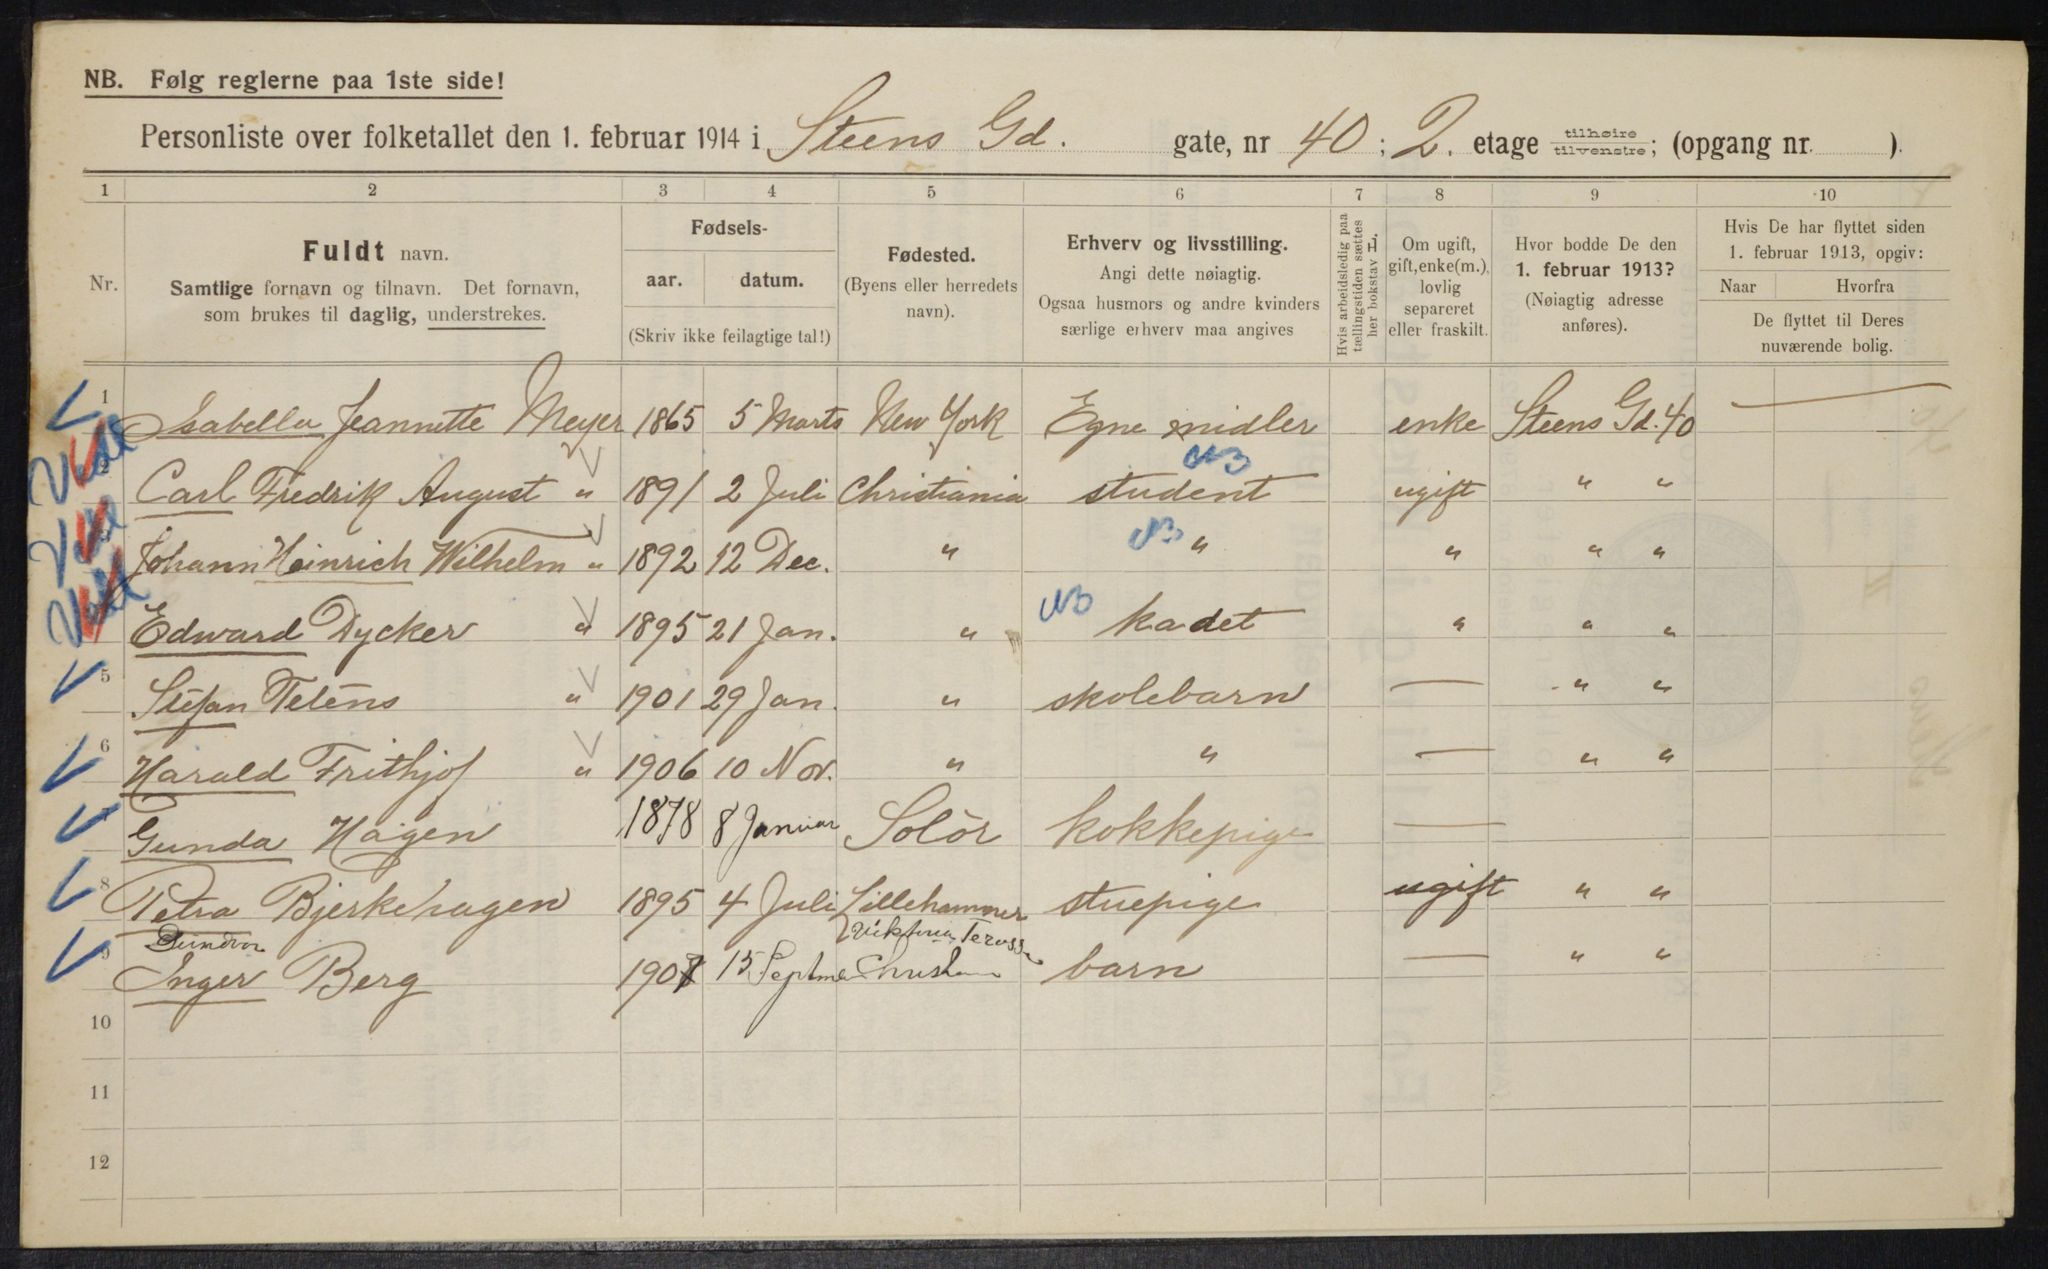 NB. Følg reglerne paa 1ste side!
Personliste over folketallet den 1. februar 1914 i Steens Gd. gate, nr 40; 2. etage tilhøire tilvenstre; (opgang nr. ).
1 2 3 4 5 6 7 8 9 10
Nr.
Fuldt navn.
Samtlige fornavn og tilnavn. Det fornavn,
som brukes til daglig, understrekes.
Fødsels-
aar. datum.
(Skriv ikke feilagtige tal!)
Fødested.
(Byens eller herredets
navn).
Erhverv og livsstilling.
Angi dette nøiagtig.
Ogsaa husmors og andre kvinders
særlige erhverv maa angives
Hvis arbeidsledig paa
tællingstiden sættes
her bokstav L.
Om ugift,
gift, enke(m.),
lovlig
separeret
eller fraskilt.
Hvor bodde De den
1. februar 1913?
(Nøiagtig adresse
anføres).
Hvis De har flyttet siden
1. februar 1913, opgiv:
Naar Hvorfra
De flyttet til Deres
nuværende bolig.
1 Isabella Jeannette Meyer 1865 5 Marts New York Egne midler enke Steens Gd. 40 —
2 Carl Fredrik August " 1891 2 Juli Christiania student ugift " "
3 Johann Heinrich Wilhelm " 1892 12 Dec. " " " " "
Edward Dycker " 1895 21 Jan. " kadet " " "
5 Stefan Telèns " 1901 29 Jan. " skolebarn — " "
6 Harald Frithjof " 1906 10 Nov. " " — " "
7 Gunda Hagen 1878 8 Januar Solör kokkepige —
8 Petra Bjerkehagen 1895 4 Juli Lillehammer stuepige ugift " "
Viktoria Terasse
9 Inger Berg 1907 15 Septmb Christiania barn — " "
10
11
12